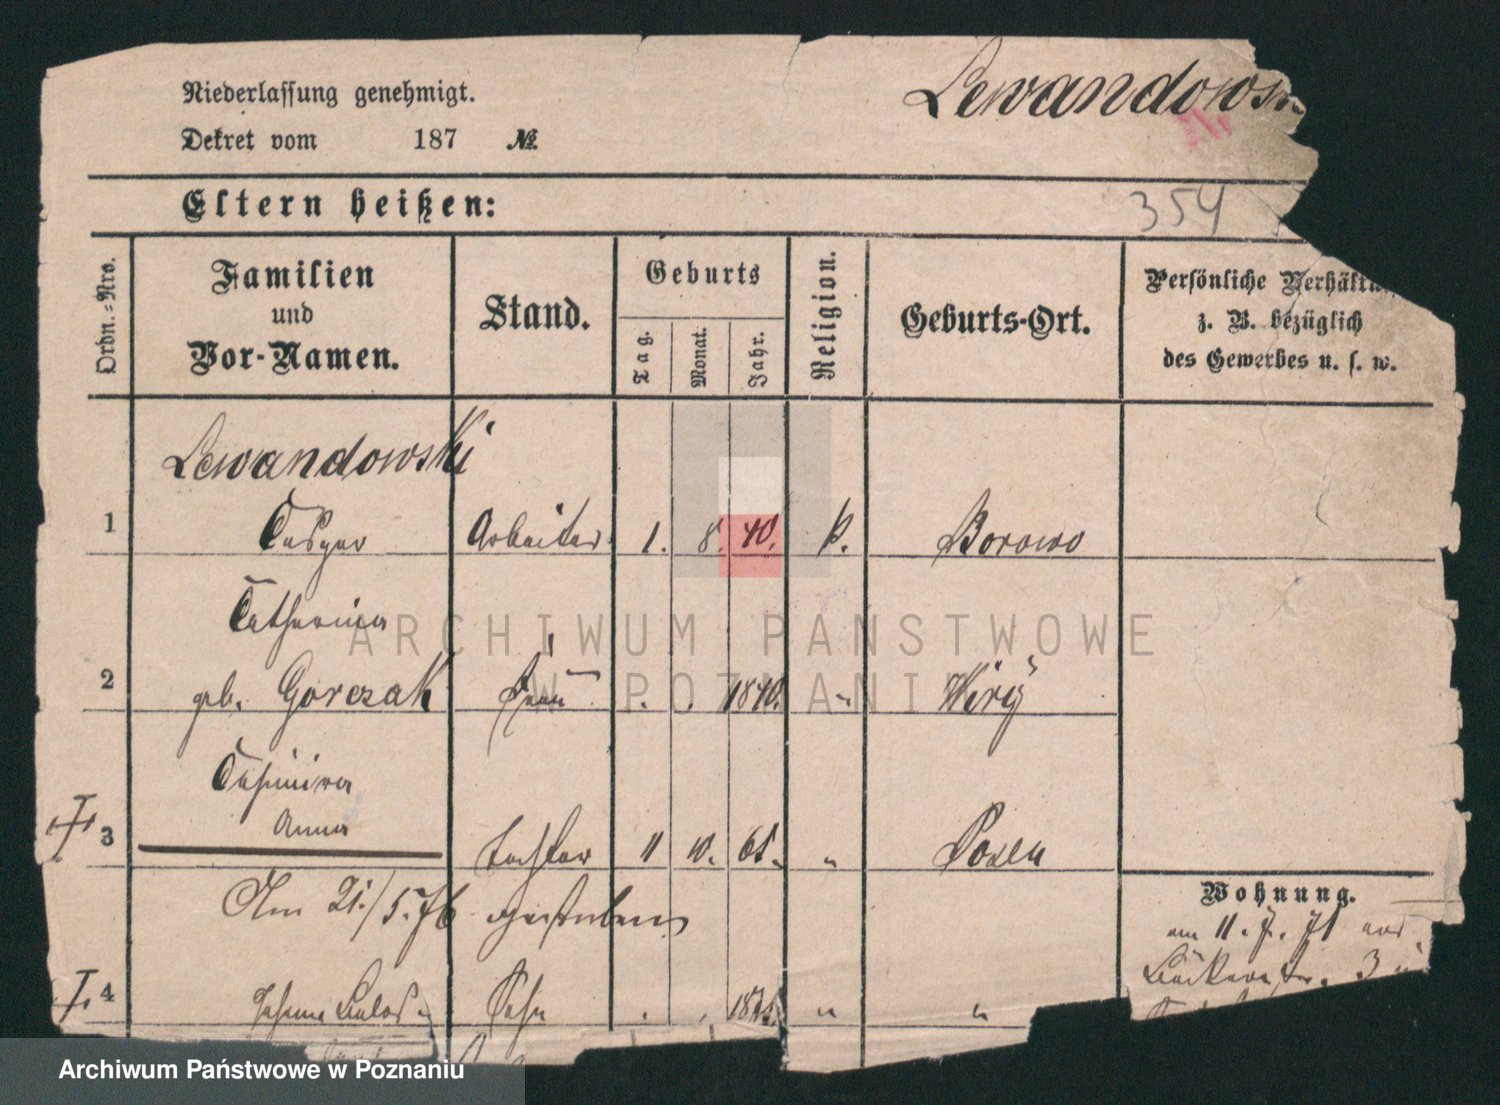 Niederlassung genehmigt.
Dekret vom 187 №
Lewandows
354
Eltern heißen:
Ordn.-Nro.
Familien
und
Vor-Namen.
Stand.
Geburts
Tag.
Monat.
Jahr.
Religion.
Geburts-Ort.
Persönliche Verhält
z. B. bezüglich
des Gewerbes u. s. w.
Lewandowski
1 Casper Arbeiter 1. 8. 40. k. Borowo
Catharina
2 geb. Gorczak Frau . . 1840. " Wiry
Casimira
Anna
3 Tochter 11 10. 65. " Posen
Am 21./5.76 gestorben
Wohnung.
am 11. 7. 71 aus
Bäckerstr. 3
4 Johann Sohn . . " "
ARCHIWUM PAŃSTWOWE
W POZNANIU
Archiwum Państwowe w Poznaniu